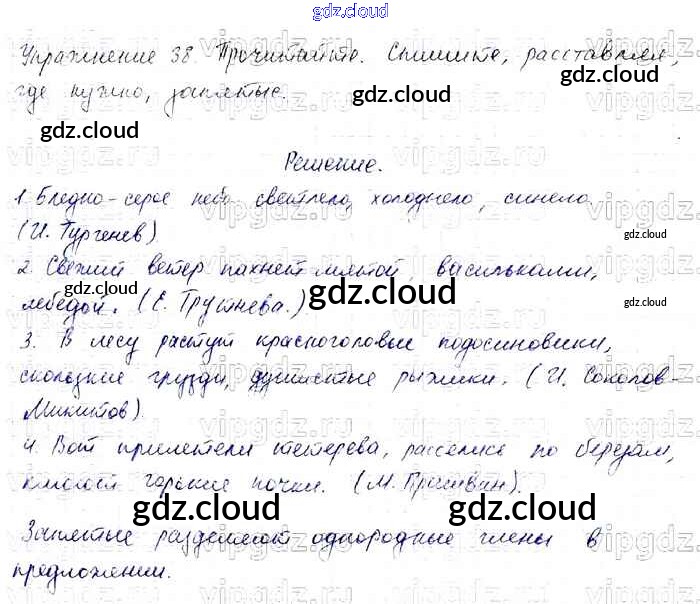 gdz.cloud
Упражнение 38. Прочитайте. Спишите, расставляя,
где нужно, запятые.
gdz.cloud
gdz.cloud
Решение.
1. Бледно-серое небо светлело, холоднело, синело.
(И. Тургенев)
gdz.cloud
2. Свежий ветер пахнет мятой, васильками,
лебедой. (Е. Трутнева.)
gdz.cloud
gdz.cloud
3. В лесу растут красноголовые подосиновики,
скользкие грузди, душистые рыжики. (И. Соколов-
Микитов)
4. Вот прилетели тетерева, расселись по березам,
клюют горькие почки. (М. Пришвин).
gdz.cloud
gdz.cloud
Запятые разделяют однородные члены в
предложении.